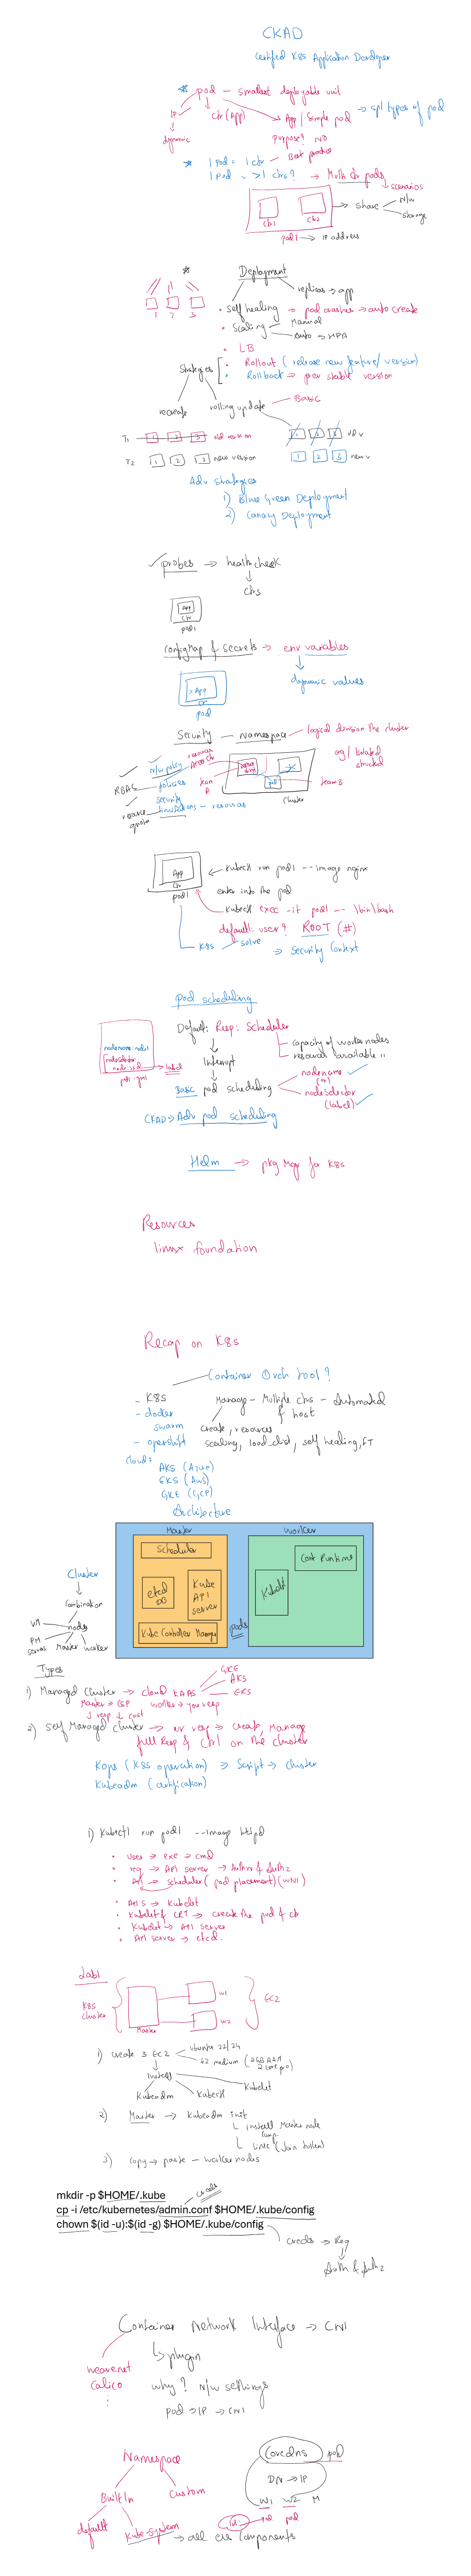 CKAD
Certified K8s Application Developer
* pod - smallest deployable unit
IP ctr (App) App / Simple pod → spl types of pod
dynamic purpose? NO
* 1 pod = 1 ctr - Best practice
1 pod = >1 ctrs? → Multi ctr pods
scenarios
ctr1 ctr2 → share N/w
storage
pod1 → IP address
* Deployment
replicas → app
1 2 3
• Self healing → pod crashes → auto create
• Scaling Manual
Auto → HPA
• LB
Strategies
• Rollout ( release new feature / version)
• Rollback → prev stable version
recreate rolling update - Basic
T1 1 2 3 old version 1 2 3 old v
T2 1 2 3 new version 1 2 3 new v
Adv strategies
1) Blue Green Deployment
2) Canary Deployment
✓ probes → healthcheck
ctrs
App
ctr
pod1
ConfigMap & Secrets → env variables
dynamic values
> App
ctr
pod
Security - namespace - logical division the cluster
resources
Access Ctr
N/w policy
RBAC policies
security
resource quota limitations - resources
team A
team B
cluster
App
ctr
pod1
← Kubectl run pod1 --image nginx
enter into the pod
Kubectl exec -it pod1 -- \bin\bash
default: user? ROOT (#)
K8s solve → Security Context
pod scheduling
Default: Resp: Scheduler
capacity of worker nodes
resources available "
nodename: node1
nodeSelector:
node: ssd → label
pod1.yml
Interrupt
Basic pod scheduling nodename ✓
(or)
nodeSelector
(label) ✓
CKAD → Adv pod scheduling
Helm → pkg Mgr for K8s
Resources
linux foundation
Recap on K8s
Container Orch tool?
- K8s
- docker swarm
- openshift
Manage - Multiple ctrs - Automated
& host
create, resources
scaling, load dist, self healing, FT
Cloud:
AKS (Azure)
EKS (AWS)
GKE (GCP)
Architecture
Master Worker
Scheduler
etcd DB
Kube API server
Kube Controller Manager
Cont Runtime
Kubelet
pods
Cluster
Combination
nodes
VM
PM
servers Master worker
Types
1) Managed Cluster → cloud KAAS GKE
AKS
EKS
Master → CSP worker → you resp
↓ resp ↓ cost
2) Self Managed cluster → ur resp → create, Manage
full Resp & Ctrl on the cluster
Kops (K8s operation) → Script → Cluster
Kubeadm (certification)
1) Kubectl run pod1 --image httpd
• User → exe → cmd
• req → API server → Authn & Authz
• API → scheduler ( pod placement) (WN1)
• API S → Kubelet
• Kubelet & CRT → create the pod & ctr
• Kubelet → API server
• API server → etcd.
Lab1
K8s Cluster
Master
W1
W2
EC2
1) Create 3 EC2 Ubuntu 22/24
t2 medium
Install
Kubeadm Kubectl Kubelet
2) Master → Kubeadm init
Install Master node comp.
Link (Join token)
3) copy → paste - worker nodes
mkdir -p $HOME/.kube
cp -i /etc/kubernetes/admin.conf $HOME/.kube/config
chown $(id -u):$(id -g) $HOME/.kube/config
creds
creds → Req
Auth & Authz
Container Network Interface → CNI
plugin
weavenet
calico
why? N/w settings
pod → IP → CNI
Namespace
BuiltIn Custom
default Kube-system → all crs components
Coredns pod
DN → IP
W1 W2 M
pod